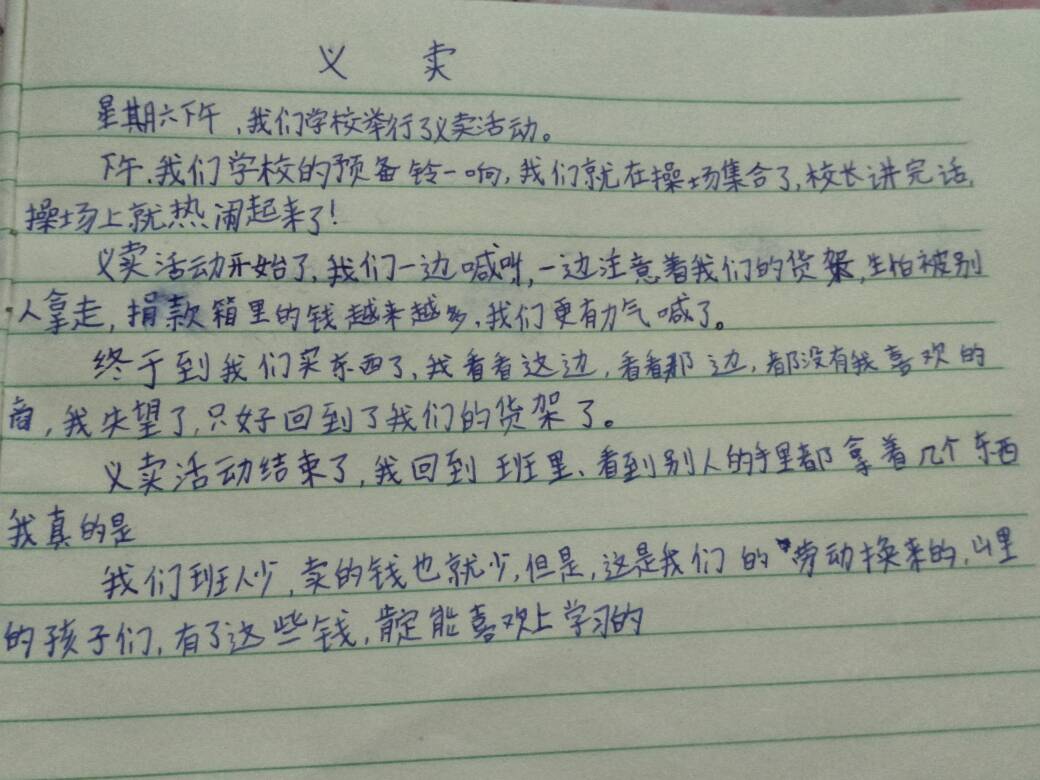 义 卖
星期六下午，我们学校举行了义卖活动。
下午，我们学校的预备铃一响，我们就在操场集合了，校长讲完话，
操场上就热闹起来了！
义卖活动开始了，我们一边喊叫，一边注意着我们的货架，生怕被别
人拿走，捐款箱里的钱越来越多，我们更有力气喊了。
终于到我们买东西了，我看看这边，看看那边，都没有我喜欢的
商，我失望了，只好回到了我们的货架了。
义卖活动结束了，我回到班里、看到别人的手里都拿着几个东西
我真的是
我们班人少，卖的钱也就少，但是，这是我们的劳动换来的，山里
的孩子们，有了这些钱，肯定能喜欢上学习的